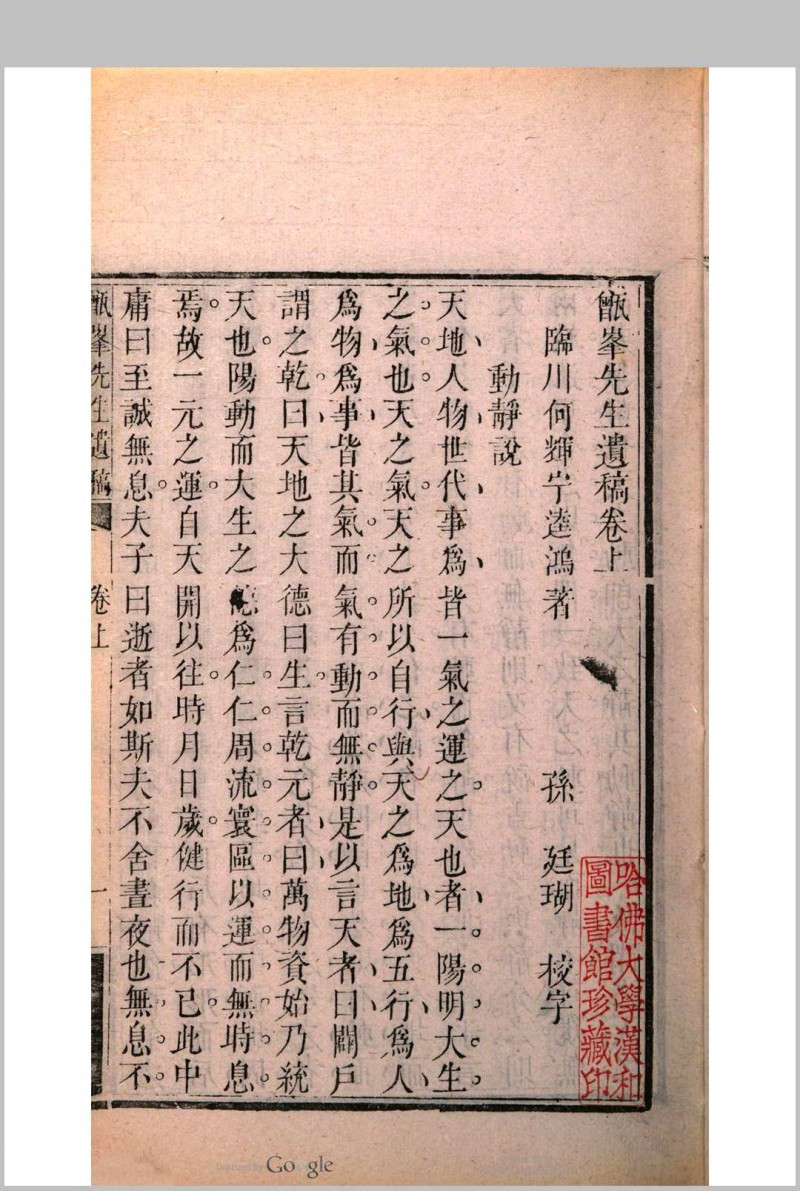 甑峯先生遺稿卷上
臨川何輝宁逵鴻著 孫 廷瑚 校字
動靜說
天地人物世代事爲皆一氣之運之天也者一陽明大生
之氣也天之氣天之所以自行與天之爲地爲五行爲人
爲物爲事皆其氣而氣有動而無靜是以言天者曰闢戶
謂之乾曰天地之大德曰生言乾元者曰萬物資始乃統
天也陽動而大生之爲仁仁周流寰區以運而無時息
焉故一元之運自天開以往時月日歲健行而不已此中
庸曰至誠無息夫子曰逝者如斯夫不舍晝夜也無息不
甑峯先生遺稿 卷上 一
哈佛大學漢和
圖書館珍藏印
Google